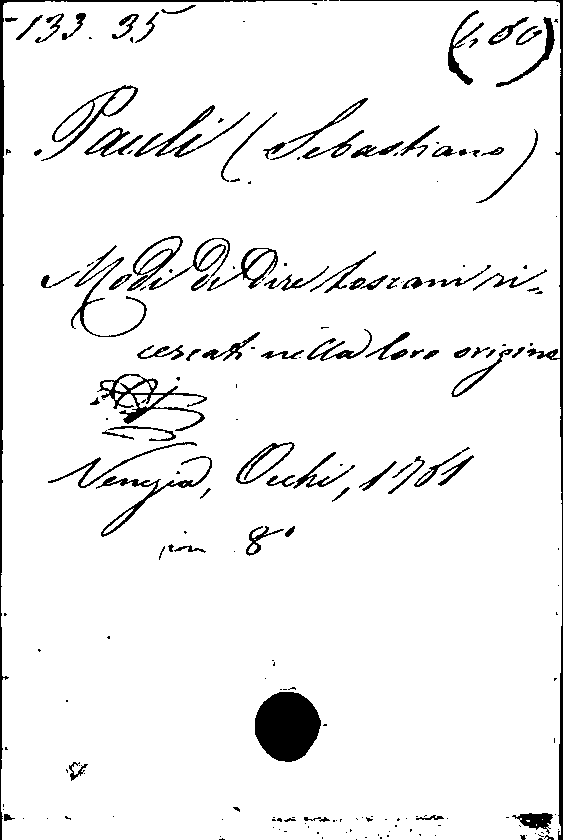 133. 35
Pauli (Sebastiano)
Modi di Dire toscani ri-
cercati nella loro origine
Venezia, Occhi, 1761
in 8°